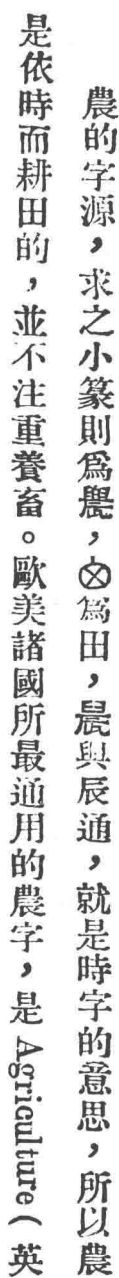 農的字源，求之小篆則爲䢉，⊗爲田，晨與辰通，就是時字的意思，所以農
是依時而耕田的，並不注重養畜。歐美諸國所最通用的農字，是Agriculture(英